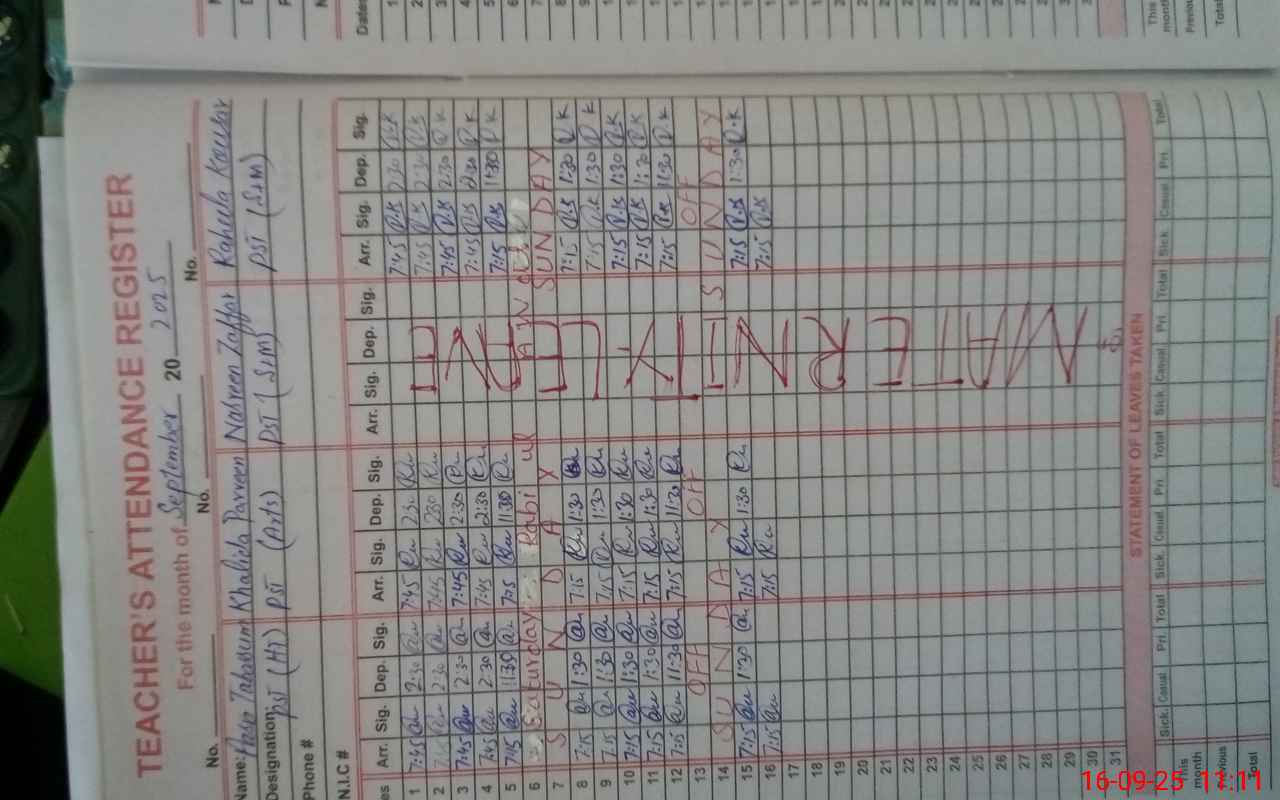 TEACHER'S ATTENDANCE REGISTER
For the month of September 2025
No. No. No.
Name: Tabasum Khalida Parveen Nasreen Zaffar Raheela Kousar
Designation: PST (H) PST (Arts) PST (S&M) PST (S&M)
Phone #
N.I.C #
Arr. Sig. Dep. Sig. Arr. Sig. Dep. Sig. Arr. Sig. Dep. Sig. Arr. Sig. Dep. Sig.
1 7:45 2:30 7:45 2:30 7:45 R.K 2:30 R.K
2 7:45 2:30 7:45 2:30 7:45 R.K 2:30 R.K
3 7:45 2:30 7:45 2:30 7:45 R.K 2:30 R.K
4 7:45 2:30 7:45 2:30 7:45 R.K 2:30 R.K
5 7:15 11:30 7:15 11:30 7:15 R.K 11:30 R.K
6 Saturday Rabi ul
7 SUNDAY SUNDAY
8 7:15 1:30 7:15 1:30 7:15 R.K 1:30 R.K
9 7:15 1:30 7:15 1:30 7:15 R.K 1:30 R.K
10 7:15 1:30 7:15 1:30 7:15 R.K 1:30 R.K
11 7:15 1:30 7:15 1:30 7:15 R.K 1:30 R.K
12 7:15 11:30 7:15 11:30 7:15 R.K 11:30 R.K
13 OFF OFF OFF
14 SUNDAY SUNDAY
15 7:15 1:30 7:15 1:30 7:15 R.K 1:30 R.K
16 7:15 7:15 7:15 R.K
17
18
19
20
21
22
23
24
25
26
27
28
29
30
31
MATERNITY LEAVE
STATEMENT OF LEAVES TAKEN
Sick Casual Pri. Total Sick Casual Pri. Total Sick Casual Pri Total Sick Casual Pri. Total
This month
Previous
Total
16-09-25 11:11